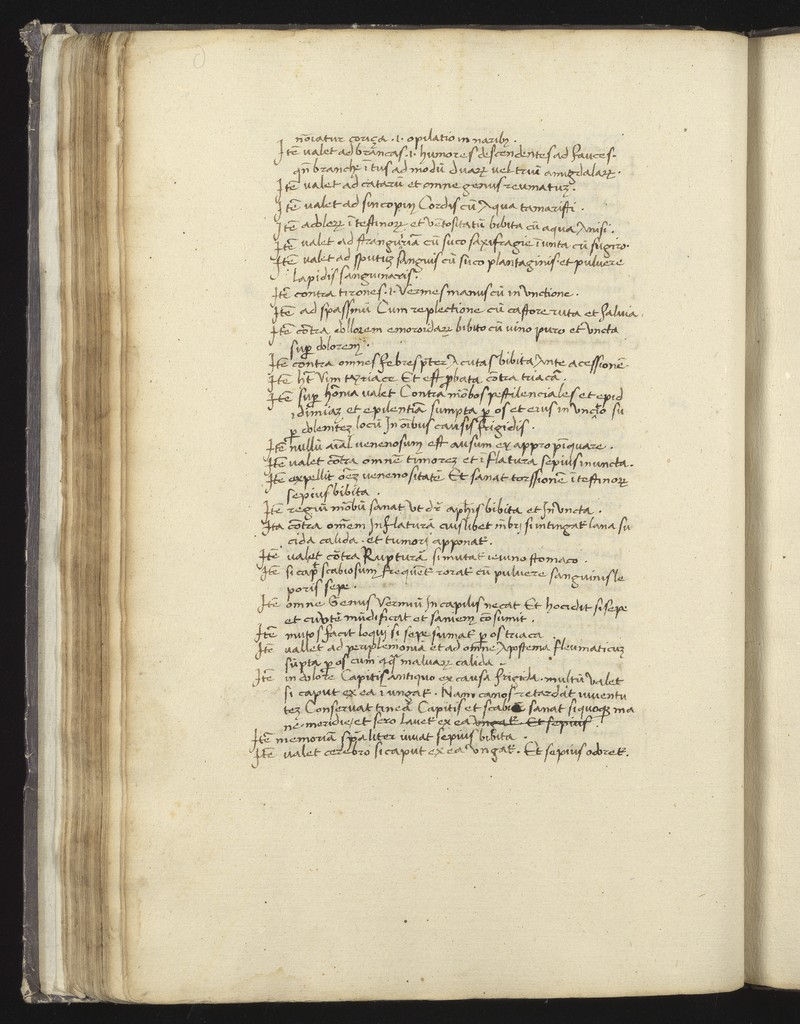 no͞iatur coriça · i · opilatio in narib; .
Ite͂ valet ad bra͞ncas · i · humores descendentes ad fauces ·
qn̄ branche i͞tus ad modu͞ duaꝝ vel triu͞ amigdalaꝝ ·
Ite͂ valet ad cataru͞ et omne genus reumatuȝ ·
Ite͂ valet ad sincopin Cordis cu͞ Aqua tamarissi ·
Ite͂ adoloꝝ i͞testinoꝝ et ve͞tositatu͞ bibita cu͞ aqua Anisi ·
Ite͂ valet ad stranguria͞ cu͞ suco saxifragie i͞uncta cu͞
Ite͂ valet ad sputuȝ sanguis cu͞ suco plantaginis · et pulvere
lapidis sanguinaris ·
Ite͂ contra tirones · i · Vermes manus cu͞ in unctione ·
Ite͂ ad spassmu͞ Cum replectione cu͞ castore ruta et salvia ·
Ite͂ co͞tra dollorem emoroidaꝝ bibito cu͞ vino puro et uncta
suꝑ dolorem ·
Ite͂ contra omnes febres p͞ter Acutas bibita Ante acessione͞
Ite͂ ht͞ Vim tyriace Et est ꝓbata co͞tra triaca͞ ·
Ite͂ suꝑ ho͞ia valet Contra mo͞bos pestilenciales et epid
idimiaȝ et epilentia͞ sumpta ꝑ os et eius in unct͞io su
ꝑ dolenteȝ locu͞ In o͞ibus causis frigidis ·
Ite͂ nullu͞ a͞ial venenosum est ausum ex appropiquare ·
Ite͂ valet co͞tra omne͞ timoreȝ et i͞flatura sepius inuncta ·
Ite͂ expellit o͞eȝ venenositate͞ Et sanat torssione͞ i͞testinoꝝ
sepius bibita ·
Ite͂ regiu͞ mo͞bu͞ sanat Vt dr͞ aph͞is bibita et In Vncta ·
Ita co͞tra om͞em Inflatura͞ cuislibet m͞bri si intingat lana su
cida calida · et tumori apponat ·
Ite͂ valet co͞tra Ruptura͞ si mutat ieiuno stomaco ·
Ite͂ si cap᷒ scabiosum freque͞t rorat cu͞ pulvere sanguinis le
poris sepe ·
Ite͂ omne Genus Vermiu͞ In capilis necat Et hocidit si sepe
et cute͞ mu͞dificat et saniem co͞sumit ·
Ite͂ mutos facit loqui si sepe sumat ꝑ os triaca
Ite͂ vallet ad periplemonia et ad omne Apostema fleumaticuȝ
su͞pta ꝑ os cum aq᷒ malvaꝝ calida ·
Ite͂ in dolore Capitis antiquo ex causa frigida · multu͞ valet
si caput ex ea i͞ungat · Nam canos retardat iuventu
teȝ Conservat tinea͞ Capitis et scabie͞ sanat si quoqȝ ma
ne · meridie / et sero lavet ex ea ungat · Et sepius
Ite͂ memoria͞ sp͞aliter iuvat sepius bibita ·
Ite͂ valet cerebro si caput ex ea Vngat · Et sepius odoret ·